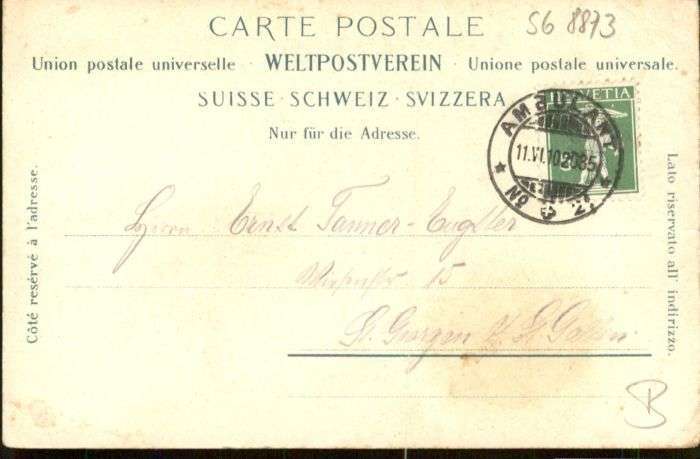 CARTE POSTALE
S6 8873
Union postale universelle · WELTPOSTVEREIN · Unione postale universale.
SUISSE · SCHWEIZ · SVIZZERA
HELVETIA
AMBULANT
11.VI.10
No 21
Nur für die Adresse.
Côté resérvé à l'adresse.
Lato riservato all' indirizzo.
Herrn Ernst Tanner-Eugster
15
St. Georgen b/ St Gallen.
B